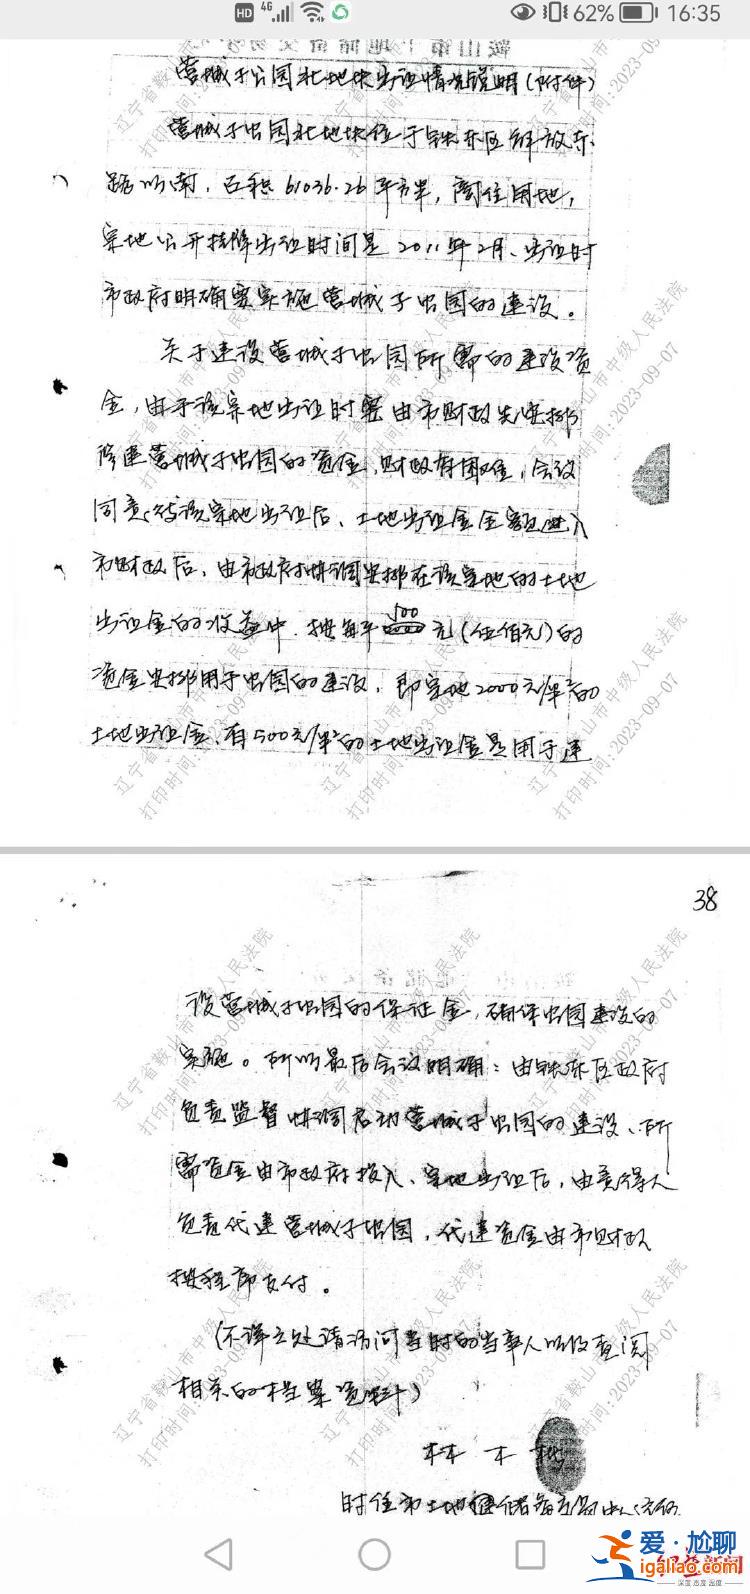 HD 4G 62% 16:35
营城子公园北地块出让情况说明(附件)
营城子公园北地块位于铁东区解放东
路以南,占积61036.26平方米,商住用地,
宗地公开挂牌出让时间是2011年2月、出让时
市政府明确要实施营城子公园的建设。
关于建设营城子公园所需的建设资
金,由于该宗地出让时要由市财政先安排
修建营城子公园的资金,财政有困难,会议
同意:待该宗地出让后、土地出让金全额进入
市财政后,由市政府协调安排在该宗地的土地
出让金的收益中,按每平500元(伍佰元)的
资金安排用于公园的建设,即宗地2000元/㎡的
土地出让金,有500元/㎡的土地出让金是用于建
38
设营城子公园的保证金,确保公园建设的
实施。所以最后会议明确:由铁东区政府
负责监督协调启动营城子公园的建设、所
需资金由市政府投入、宗地出让后,由竞得人
负责代建营城子公园,代建资金由市财政
按程序支付。
(不详之处请询问当时的当事人以及查阅
相关的档案资料)
林木
时任市土地储备交易中心
辽宁省鞍山市中级人民法院
打印时间:2023-09-07
爱·尬聊
igaliao.com
深度 态度 温度